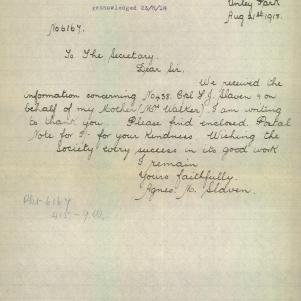 Unley Park
acknowledged 23/8/18
Aug 21st 1918.
No 6167.
To The Secretary.
Dear Sir,
We received the
information concerning No 438. Cpl L. J. Slaven & on
behalf of my Mother (Mrs Walker) I am writing
to thank you. Please find enclosed. Postal
Note for 5/- for your kindness. Wishing the
Society every success in its good work
I remain
Yours faithfully.
Agnes M. Slaven.
6167